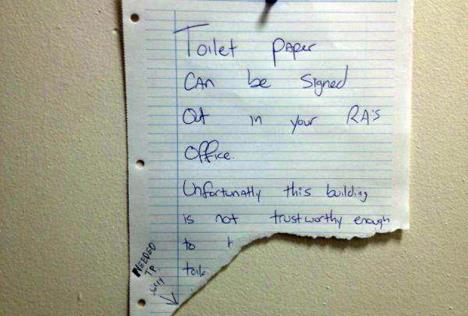 Toilet paper
CAn be Signed
Out in your RA's
Office.
Unfortunatly this building
is not trustworthy enough
to
toile
NEEDED
TP